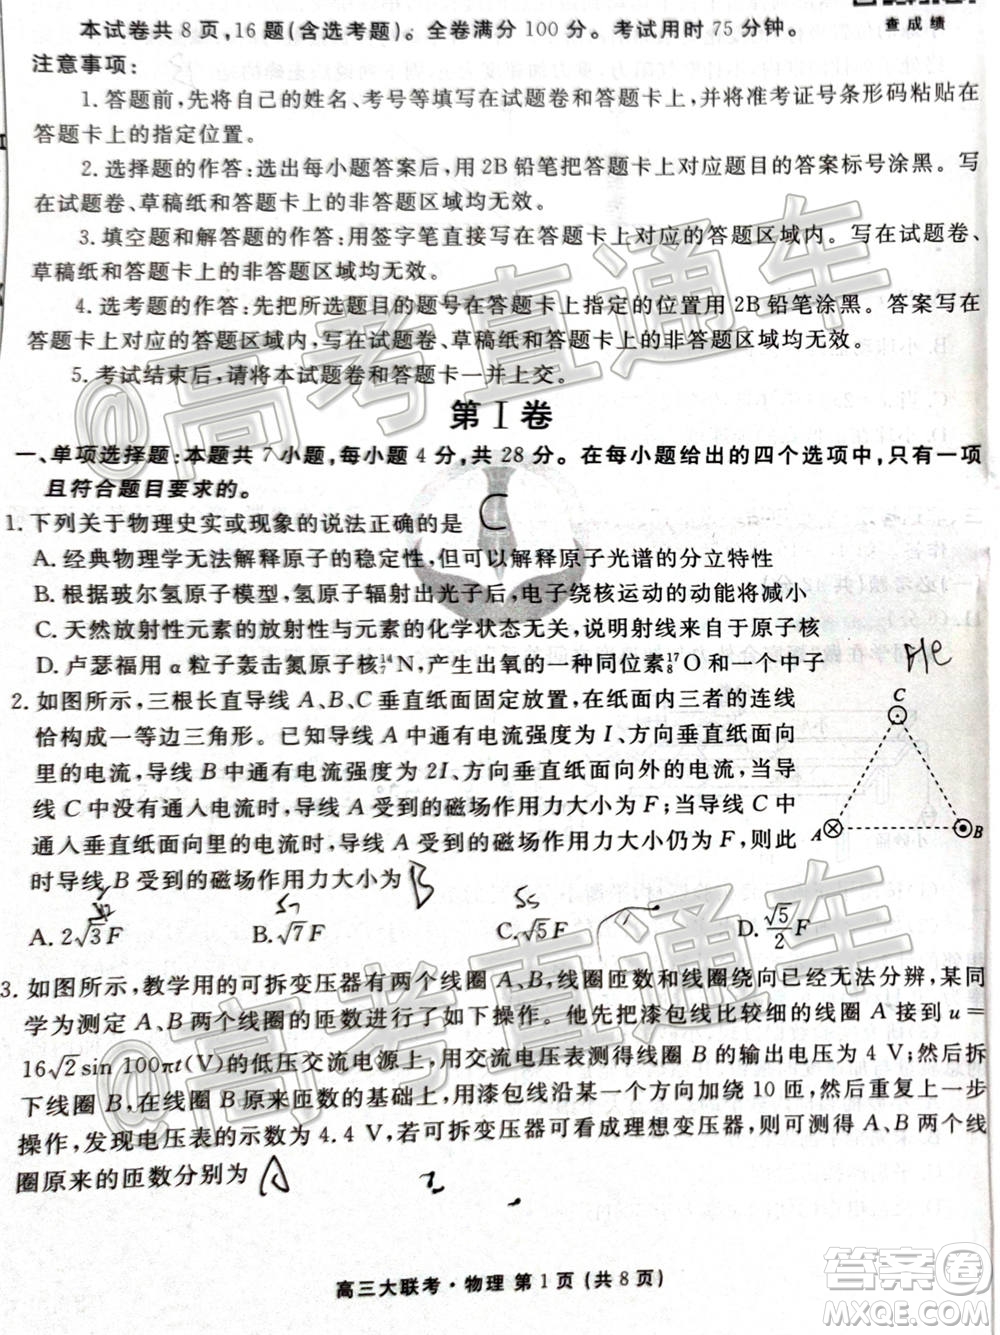 查成绩
本试卷共8页,16题(含选考题)。全卷满分100分。考试用时75分钟。
注意事项:
1.答题前,先将自己的姓名、考号等填写在试题卷和答题卡上,并将准考证号条形码粘贴在
答题卡上的指定位置。
2.选择题的作答:选出每小题答案后,用2B铅笔把答题卡上对应题目的答案标号涂黑。写
在试题卷、草稿纸和答题卡上的非答题区域均无效。
3.填空题和解答题的作答:用签字笔直接写在答题卡上对应的答题区域内。写在试题卷、
草稿纸和答题卡上的非答题区域均无效。
4.选考题的作答:先把所选题目的题号在答题卡上指定的位置用2B铅笔涂黑。答案写在
答题卡上对应的答题区域内,写在试题卷、草稿纸和答题卡上的非答题区域均无效。
5.考试结束后,请将本试题卷和答题卡一并上交。
第Ⅰ卷
一、单项选择题:本题共7小题,每小题4分,共28分。在每小题给出的四个选项中,只有一项
且符合题目要求的。
1.下列关于物理史实或现象的说法正确的是 C
A.经典物理学无法解释原子的稳定性,但可以解释原子光谱的分立特性
B.根据玻尔氢原子模型,氢原子辐射出光子后,电子绕核运动的动能减小
C.天然放射性元素的放射性与元素的化学状态无关,说明射线来自于原子核
D.卢瑟福用α粒子轰击氮原子核¹⁴₇N,产生出氧的一种同位素¹⁷₈O和一个中子
2.如图所示,三根长直导线A、B、C垂直纸面固定放置,在纸面内三者的连线
恰构成一等边三角形。已知导线A中通有电流强度为I、方向垂直纸面向
里的电流,导线B中通有电流强度为2I、方向垂直纸面向外的电流,当导
线C中没有通入电流时,导线A受到的磁场作用力大小为F;当导线C中
通入垂直纸面向里的电流时,导线A受到的磁场作用力大小仍为F,则此
时导线B受到的磁场作用力大小为 B
A.2√3F B.√7F C.√5F D.√5/2F
C
A
B
3.如图所示,教学用的可拆变压器有两个线圈A、B,线圈匝数和线圈绕向已经无法分辨,某同
学为测定A、B两个线圈的匝数进行了如下操作。他先把漆包线比较细的线圈A接到u=
16√2sin 100πt(V)的低压交流电源上,用交流电压表测得线圈B的输出电压为4 V;然后拆
下线圈B,在线圈B原来匝数的基础上,用漆包线沿某一个方向加绕10匝,重复上一步
操作,发现电压表的示数为4.4 V,若可拆变压器可看成理想变压器,则可测得A、B两个线
圈原来的匝数分别为 A
高三大联考·物理 第1页(共8页)
@高考直通车
@高考直通车
答案圈
MXQE.COM